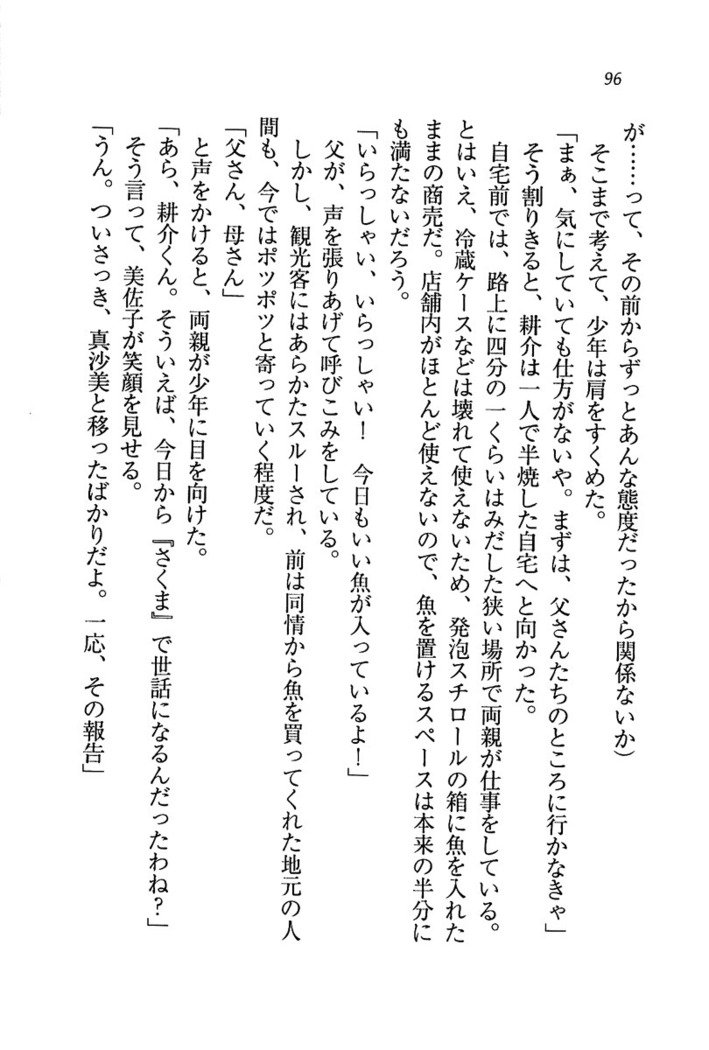 96
が……って、その前からずっとあんな態度だったから関係ないか）
そこまで考えて、少年は肩をすくめた。
「まぁ、気にしていても仕方がないや。まずは、父さんたちのところに行かなきゃ」
そう割りきると、耕介は一人で半焼した自宅へと向かった。
自宅前では、路上に四分の一くらいはみだした狭い場所で両親が仕事をしている。
とはいえ、冷蔵ケースなどは壊れて使えないため、発泡スチロールの箱に魚を入れた
ままの商売だ。店舗内がほとんど使えないので、魚を置けるスペースは本来の半分に
も満たないだろう。
「いらっしゃい、いらっしゃい！　今日もいい魚が入っているよ！」
父が、声を張りあげて呼びこみをしている。
しかし、観光客にはあらかたスルーされ、前は同情から魚を買ってくれた地元の人
間も、今ではポツポツと寄っていく程度だ。
「父さん、母さん」
と声をかけると、両親が少年に目を向けた。
「あら、耕介くん。そういえば、今日から『さくま』で世話になるんだったわね？」
そう言って、美佐子が笑顔を見せる。
「うん。ついさっき、真沙美と移ったばかりだよ。一応、その報告」